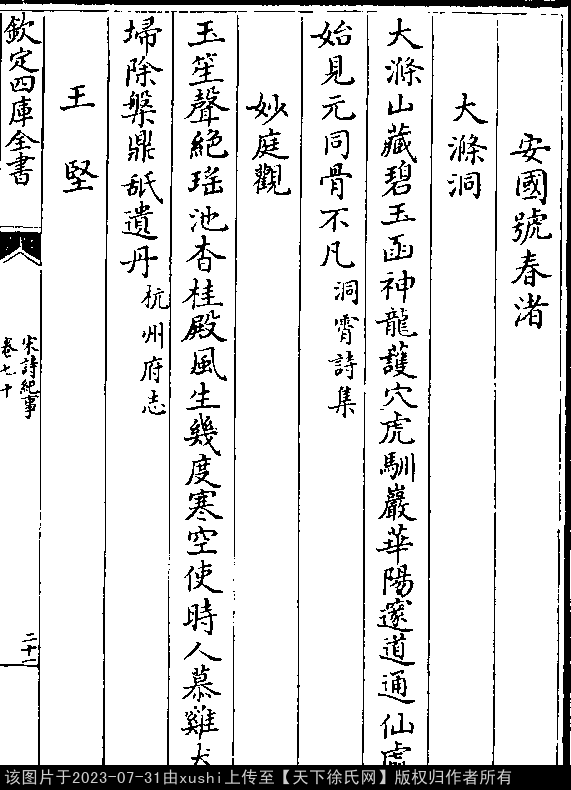 安國號春渚
大滌洞
大滌山藏碧玉函神龍護穴虎馴巖華陽邃道通仙處
始見元同骨不凡洞霄詩集
妙庭觀
玉笙聲絶瑶池杳桂殿風生幾度寒空使時人慕雞犬
埽除槃鼎舐遺丹杭州府志
王堅
欽定四庫全書
宋詩紀事
卷七十
二十二
该图片于2023-07-31由xushi上传至【天下徐氏网】版权归作者所有